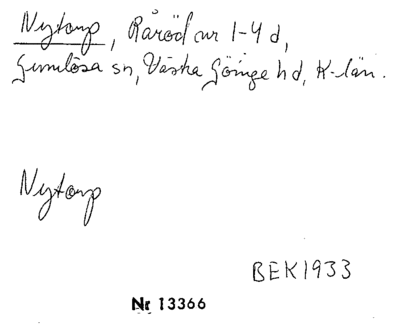 Nytorp, Råröd nr 1-4 d,
Gumlösa sn, Västra Göinge hd, K-län.
Nytorp
BEK1933
Nr 13366